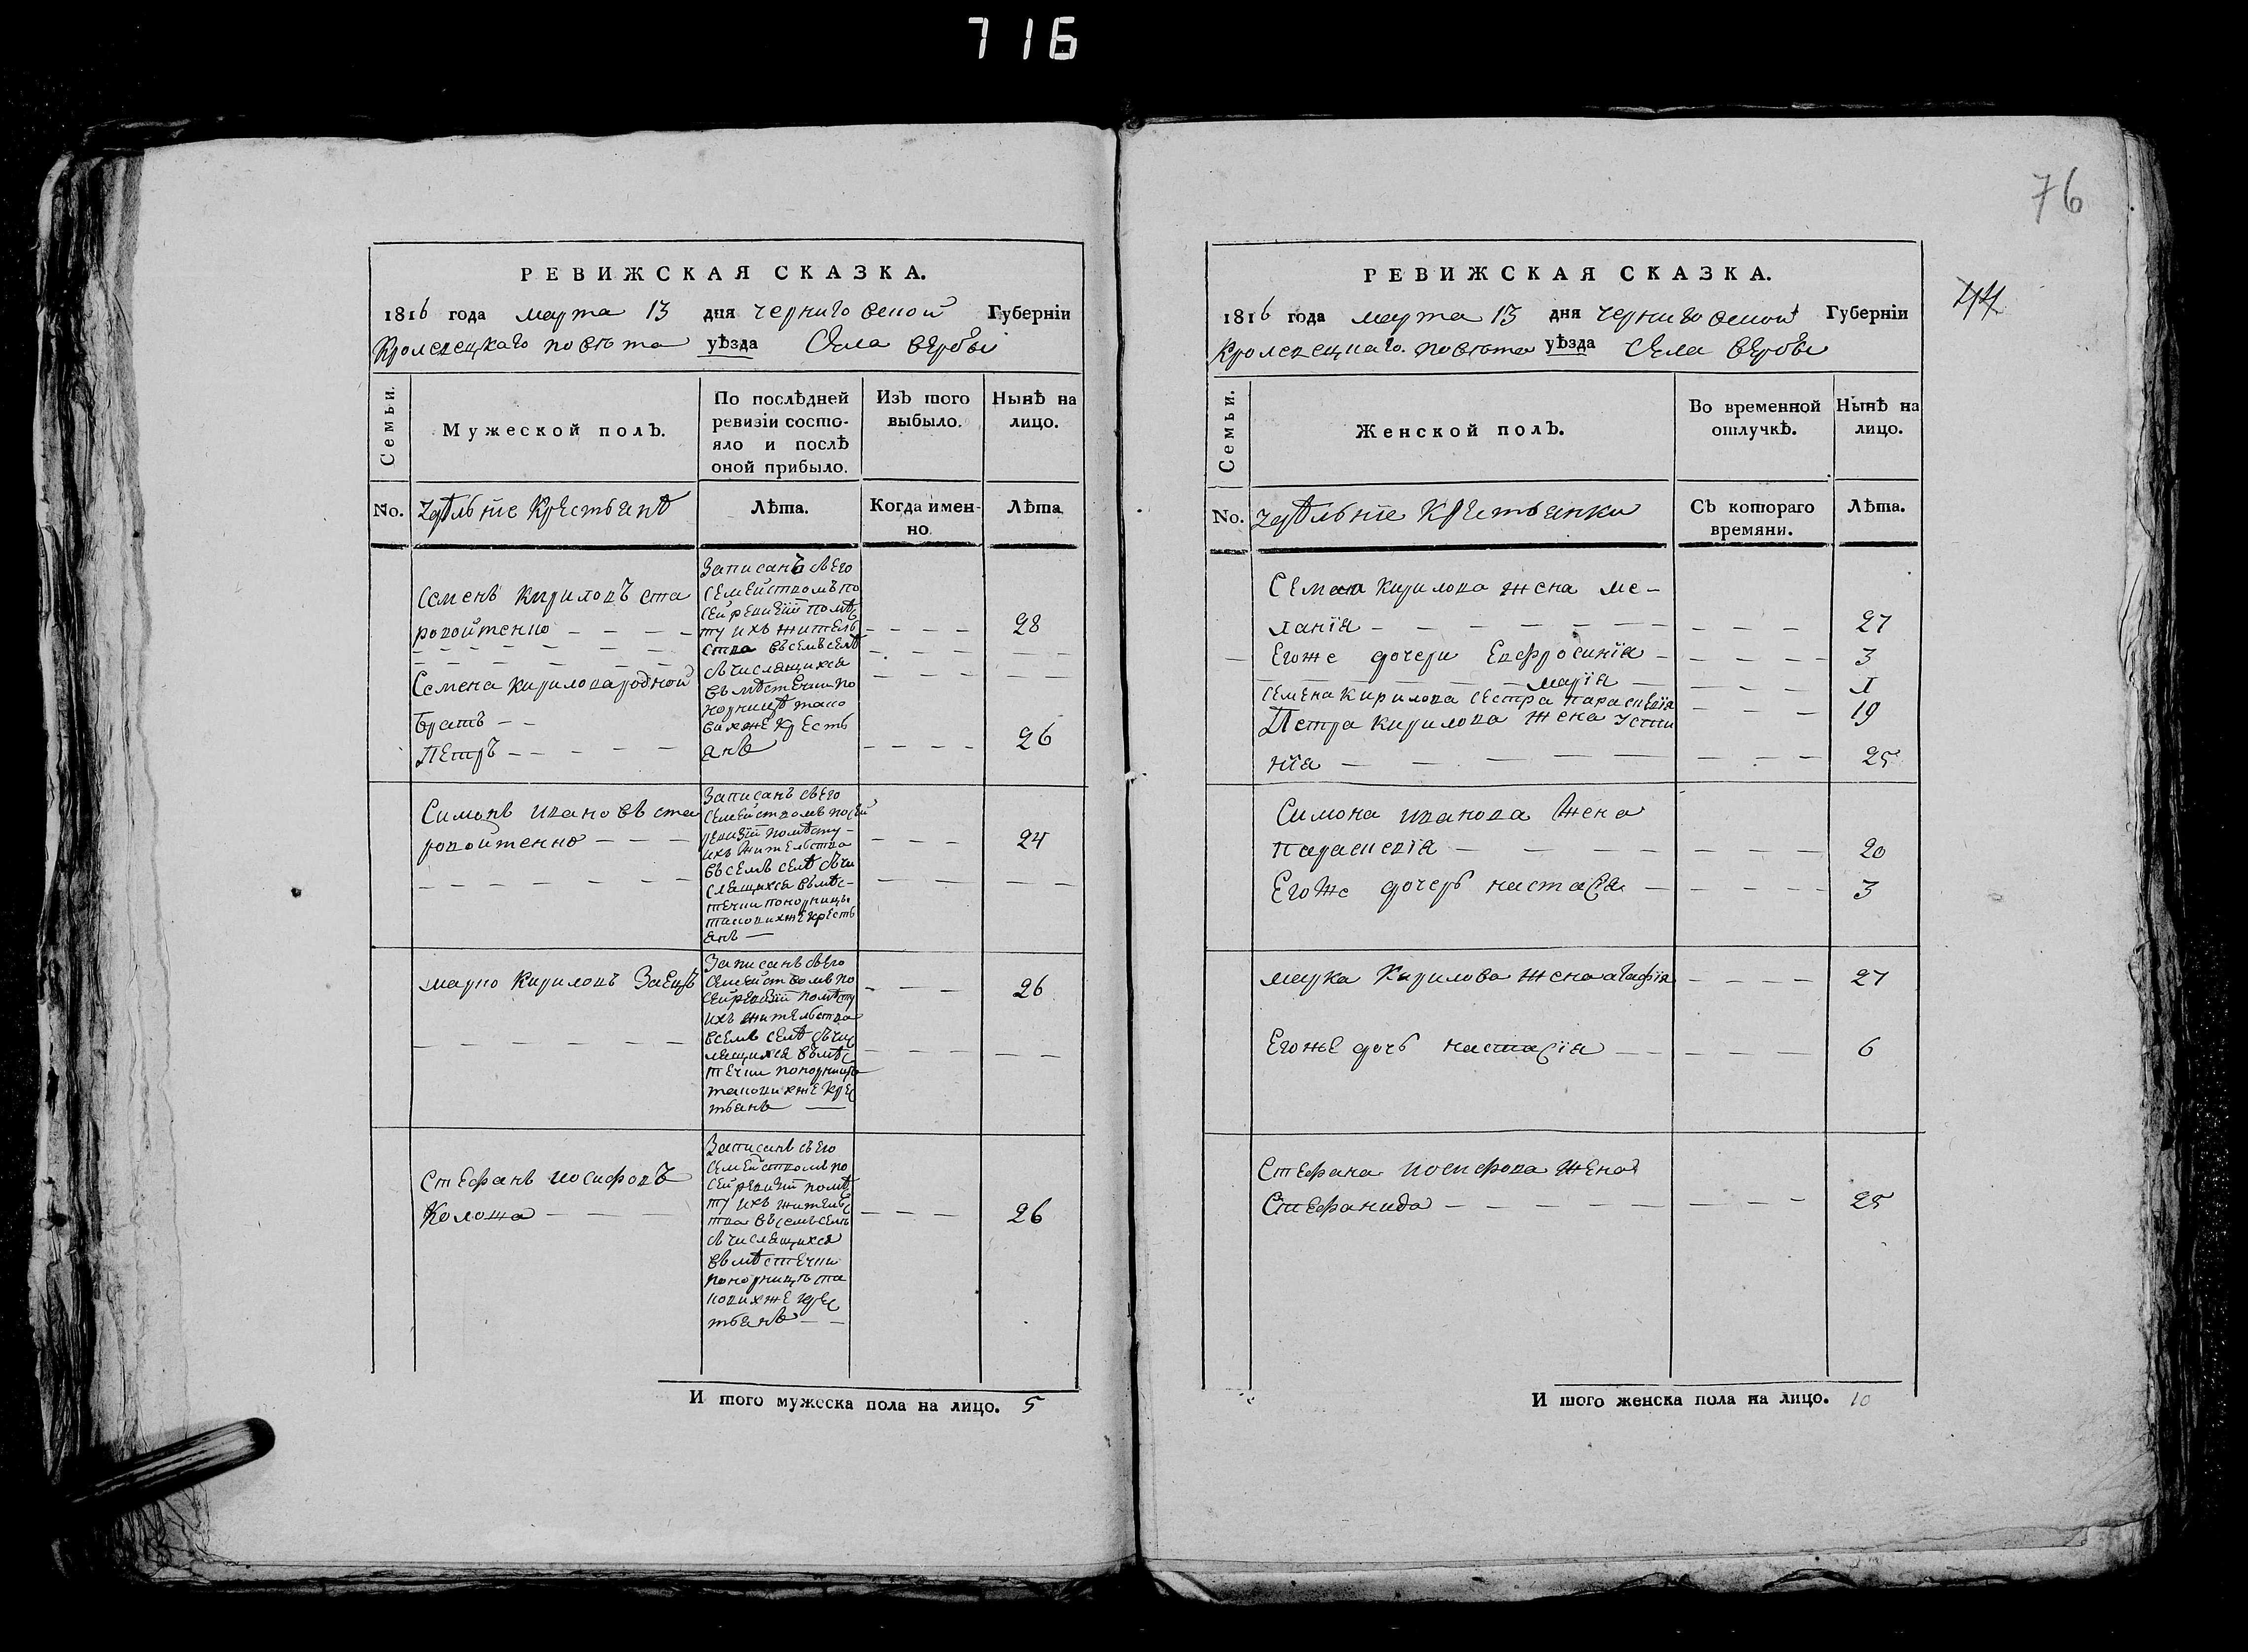 716
76
РЕВИЖСКАЯ СКАЗКА.
1816 года марта 13 дня Черниговской Губерніи
Кролевецкаго повѣта уѣзда Села Вербы
Семьи.
Мужеской полъ.
По послѣдней
ревизіи состо-
яло и послѣ
оной прибыло.
Изъ того
выбыло.
Нынѣ на
лицо.
No.
здѣльніе Крестьянѣ
Лѣта.
Когда имен-
но.
Лѣта
Семенъ Кириловъ Ста
ровойтенко
28
Семена Кирилова родной
братъ
Петръ
26
Записанъ съ его
семействомъ по
сей ревизіи по мѣс
ту ихъ житель
ства въ семъ селѣ
съ числящихся
въ мѣстечки по
норницѣ тако
вихже кресть
янъ
Симонъ Ивановъ Ста
ровойтенко
24
Записанъ съ его
семействомъ по сей
ревизіи по мѣсту
ихъ жительства
въ семъ селѣ съ чи
слящихся въ мѣс-
течки понорницы
таковихже кресть
янъ
Марко Кириловъ Заецъ
26
Записанъ съ его
семействомъ по
сей ревизіи по мѣсту
ихъ жительства
в семъ селѣ съ чис
лящихся въ мѣс
течки понорницѣ
таковихже крес
тьянъ
Стефанъ Иосифовъ
Колоша
26
Записанъ съ его
семействомъ по
сей ревизіи по мѣс
ту ихъ жительс
тва въ семъ селѣ
съ числящихся
въ мѣстечки
понорницѣ та
ковихже крес
тьянъ
И того мужеска пола на лицо. 5
РЕВИЖСКАЯ СКАЗКА.
1816 года марта 13 дня Черниговской Губерніи
Кролевецкаго повѣта уѣзда Села Вербы
Семьи.
Женской полъ.
Во временной
отлучкѣ.
Нынѣ на
лицо.
No.
здѣльніе Крестьянки
Съ котораго
времяни.
Лѣта.
Семена Кирилова жена Ме-
ланія 27
Егоже дочери Евфросинія 3
Марія 1
Семена Кирилова сестра Параскевія 19
Петра Кирилова жена Усти
нія 25
Симона Иванова жена
Параскевія 20
Егоже дочерь Настасія 3
Марка Кирилова жена Агафія 27
Егоже дочь Настасія 6
Стефана Иосифова жена
Стефанида 25
И того женска пола на лицо. 10